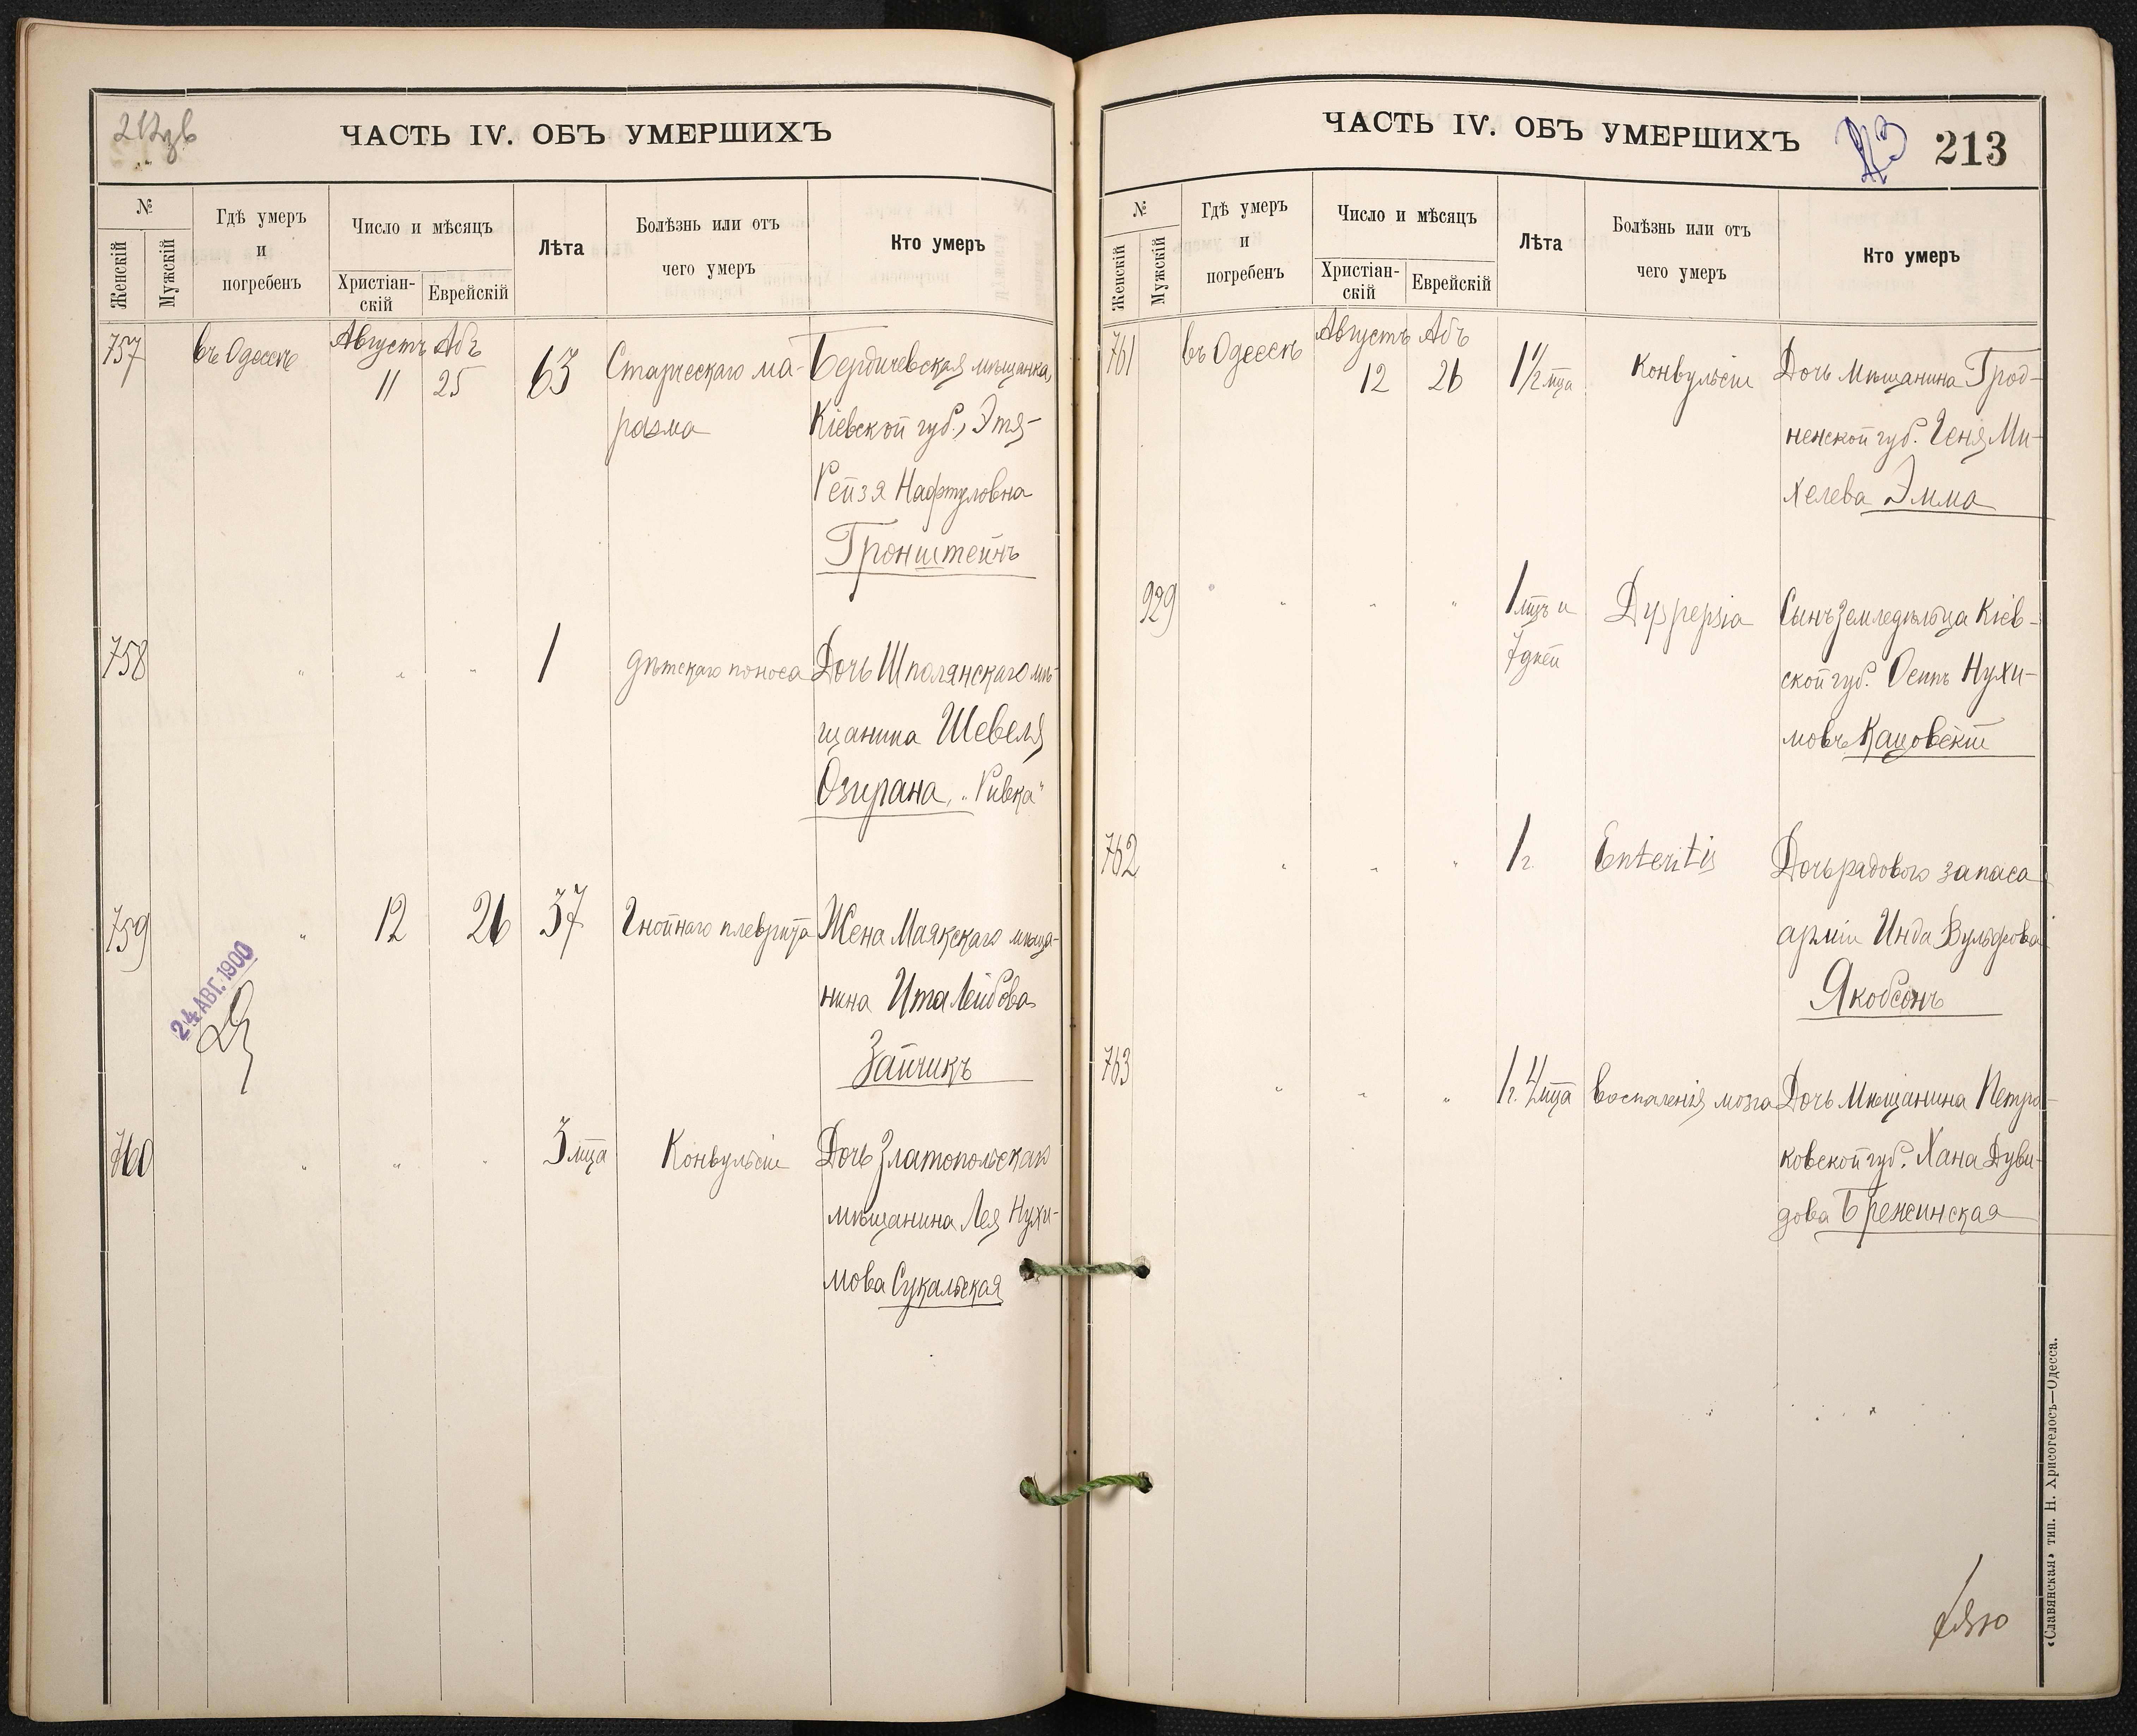 212 об
ЧАСТЬ IV. ОБЪ УМЕРШИХЪ
№
Женскій
Мужскій
Гдѣ умеръ
и
погребенъ
Число и мѣсяцъ
Христіан-
скій
Еврейскій
Лѣта
Болѣзнь или отъ
чего умеръ
Кто умеръ
757 въ Одессѣ Августъ Абъ
11 25 63 Старческаго ма- Бердичевская мѣщанка,
разма Кіевской губ., Этя-
Рейзя Нафтуловна
Гронштейнъ
758 " " " 1 дѣтскаго поноса Дочь Шполянскаго мѣ-
щанина Шевеля
Озирана, "Ривка"
759 " 12 26 37 Гнойнаго плеврита Жена Маякскаго мѣща-
нина Ита Лейбова
Зайчикъ
24 АВГ. 1900
760 " " " 3 мца Конвульсіи Дочь Златопольскаго
мѣщанина Лея Нухи-
мова Сукальская
ЧАСТЬ IV. ОБЪ УМЕРШИХЪ
213
№
Женскій
Мужскій
Гдѣ умеръ
и
погребенъ
Число и мѣсяцъ
Христіан-
скій
Еврейскій
Лѣта
Болѣзнь или отъ
чего умеръ
Кто умеръ
761 въ Одессѣ Августъ Абъ
12 26 1 1/2 мца Конвульсіи Дочь Мѣщанина Грод-
ненской губ. Геня Ми-
хелева Эмма
929 " " " " 1 мцъ и Dyspepsia Сынъ Земледѣльца Кіев-
7 дней ской губ. Осипъ Нухи-
мовъ Кацовскій
762 " " " 1 г. Enteritis Дочь рядового запаса
арміи Инда Вульфова
Якобсонъ
763 " " " 1 г. 4 мца воспаленія мозга Дочь Мѣщанина Петро-
ковской губ. Хана Дуви-
дова Брежинская
«Славянская» тип. Н. Хрисогелосъ—Одесса.